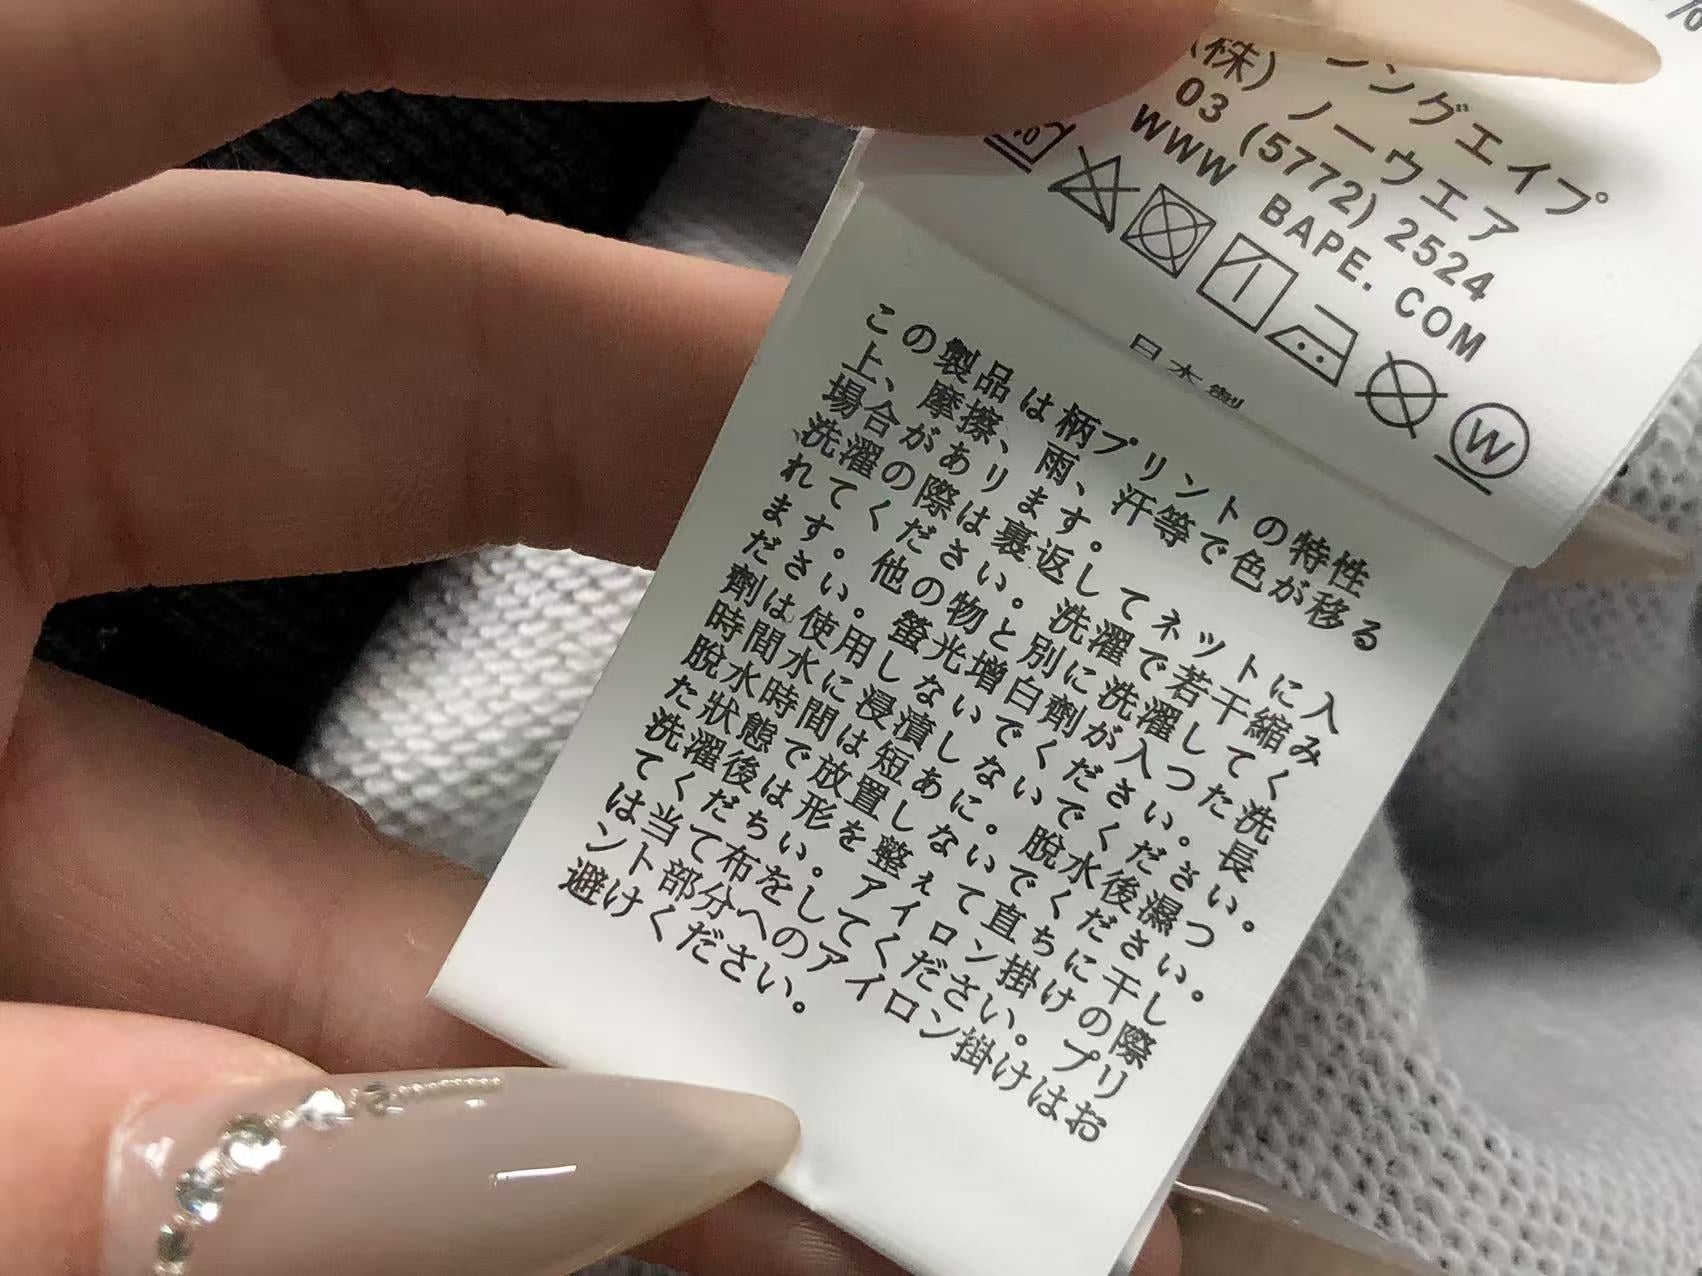 ングエイプ
(株) ノーウエア
03 (5772) 2524
WWW BAPE. COM
W
日本製
この製品は柄プリントの特性
上、摩擦、雨、汗等で色が移る
場合があります。
洗濯の際は裏返してネットに入
れてください。洗濯で若干縮み
ます。他の物と別に洗濯してく
ださい。螢光増白劑が入つた洗
劑は使用しないでください。長
時間水に浸漬しないでください。
脫水時間は短あに。脫水後濕つ
た狀態で放置しないでください。
洗濯後は形を整ぇて直ちに干し
てくだちい。アイロン掛けの際
は当て布をしてください。プリ
ント部分へのアイロン掛けはお
避けください。